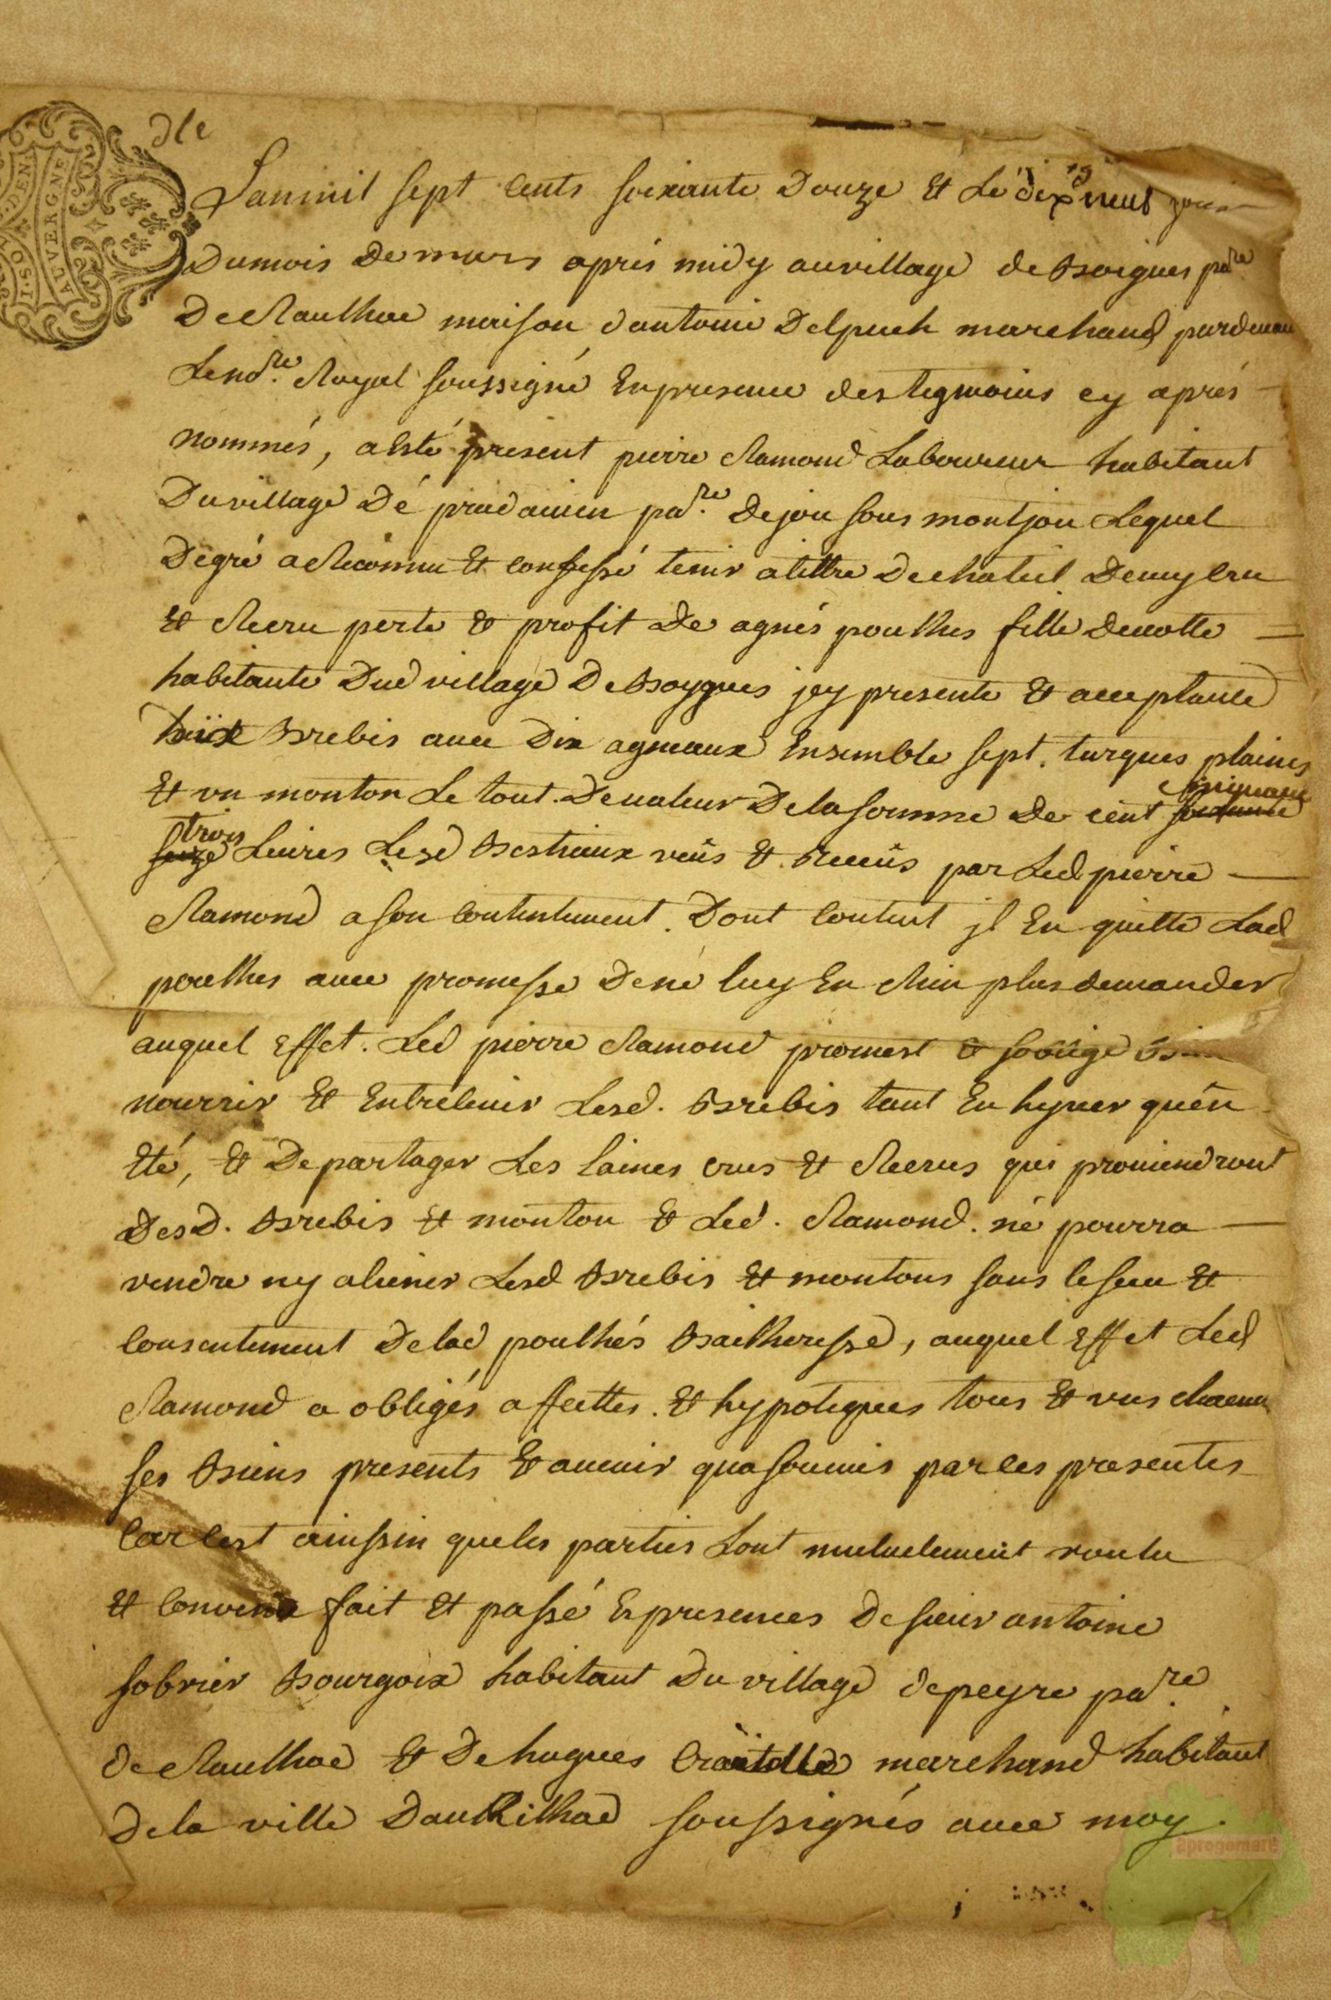 dle
I·SOL·DEN·
AUVERGNE
Lanmil sept cents soixante douze et Le dix neuf 19 jour
Dumois de mars aprés midy auvillage de Boigues p.re
De Raulhac maison d'antoine Delpuech marchand pardevant
Leno.re Royal soussigné En presence des tesmoins cy aprés
nommés, a Esté present pierre Ramond Laboureur habitant
Du village Dé pa.re De jou sous montjou Lequel
Degré a Reconnu et confessé tenir atittre De chateil Demy cru
et Recru perte et profit De agnés poulhes fille Devotte
habitante Dud village De Boygues jcy presente et acceptante
Brebis avec Dix agneaux Ensemble sept. turgues plaines
et un mouton Le tout Devaleur De la somme De cent soixante
trois seize Livres Lesd Bestiaux veus et Receus par Led pierre
Ramond a son contentement. Dont content jl En quitte Lad
poulhes avec promesse Dené luy En Rien plus demander
auquel Effet. Led pierre Ramond promest et soblige Bien
nourrir et Entretenir Lesd. Brebis tant En hyver quen
Eté, et De partager Les laines crus et Recrus qui proviendront
Desd. Brebis et mouton et Led. Ramond. né pourra
vendre ny aliener Lesd Brebis et moutons sans le sceu et
consentement Delad poulhés Bailheresse, auquel Effet Led
Ramond a obligés affectes. et hypoteques tous et uns chacun
ses Biens presents et avenir qua soumis par les presentes
Car c'est ainssin que les parties Lont mutuelement voulu
et convenu fait et passé En presences De sieur antoine
sobrier Bourgoix habitant Du village depeyre pa.re
de Raulhac et De hugues marchand habitant
De la ville Daurilhac soussignés avec moy.
aprogemere